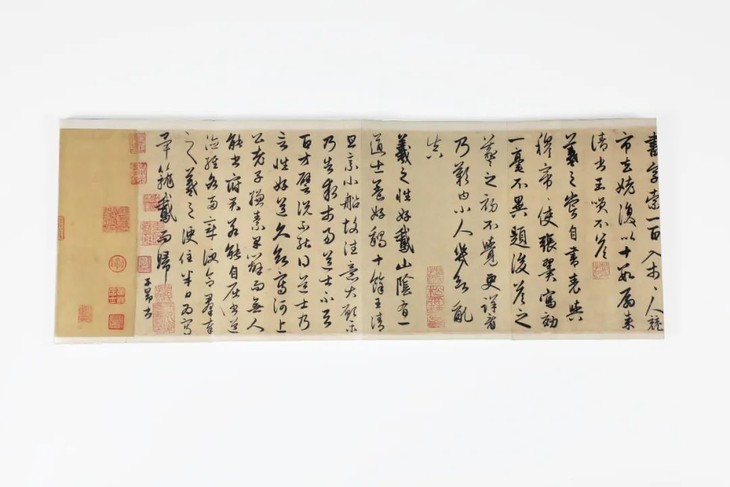 書字索一百入市市人競
市去姥復以十數扇来
請書王笑不答
羲之嘗自書表與
穆帝帝使張翼寫効
一毫不異題後答之
羲之初不覺更詳看
乃歎曰小人幾欲亂
真
羲之性好鵞山陰有一
道士養好鵞十餘王清
旦乘小船故往意大願樂
乃告求市易道士不与
百方譬說不能得道士乃
言性好道久欲寫河上
公老子縑素早辦而無人
能書府君若能自屈書道
德經各兩章便合羣以奉
之羲之便住半日為寫
畢籠鵞而歸
子昂書